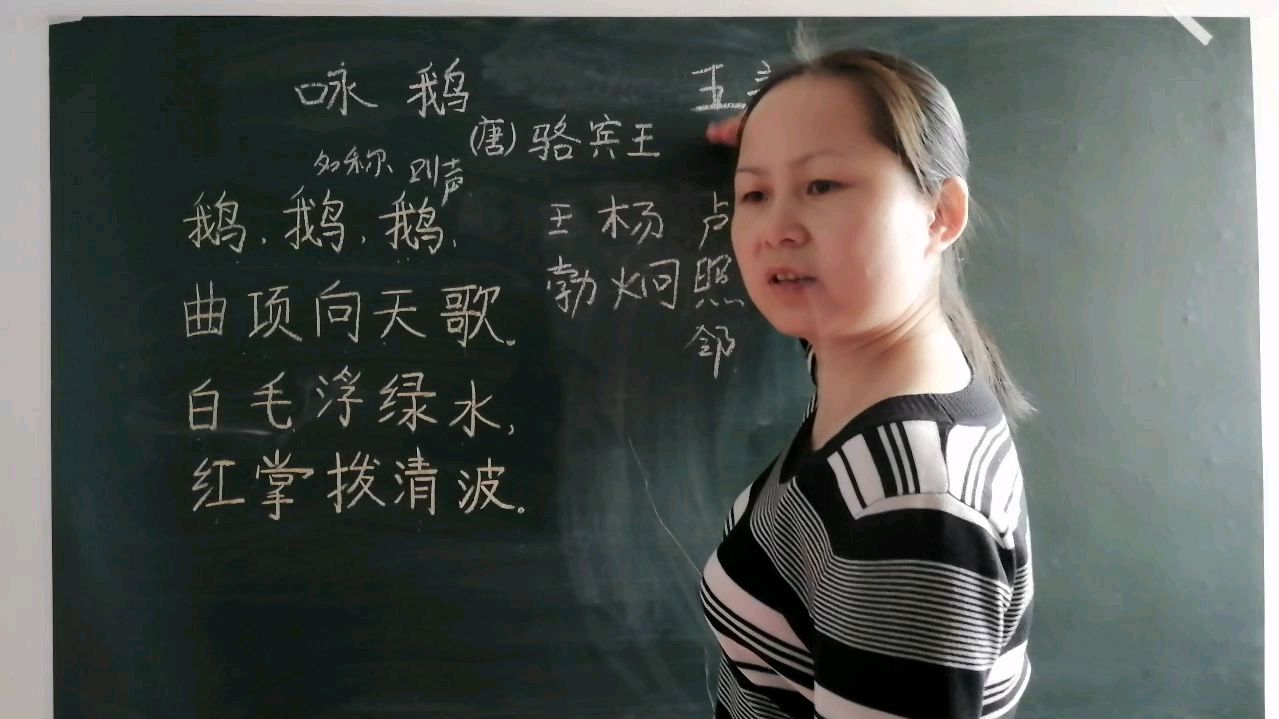 咏鹅
五言
(唐)骆宾王
名称 叫声
鹅,鹅,鹅,
曲项向天歌。
白毛浮绿水,
红掌拨清波。
王勃
杨炯
卢照邻